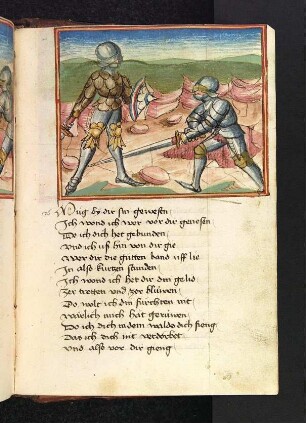 Mug by dir sin gewesen
Ich wond ich wer vor dir genesen
Do ich dich het gebunden
Vnd ich uß hin von dir gie
Wer dir die gutten band uff lie
In also kurtzen stunden
Ich wond ich het dir din gelid
Zer tretten und zer bluwen
So wolt ich din furchten nit
warlich mich hat geruwen
Do ich dich in dem walde dich fieng
Das ich dich nit verdorbet
Vnd also vor dir gieng